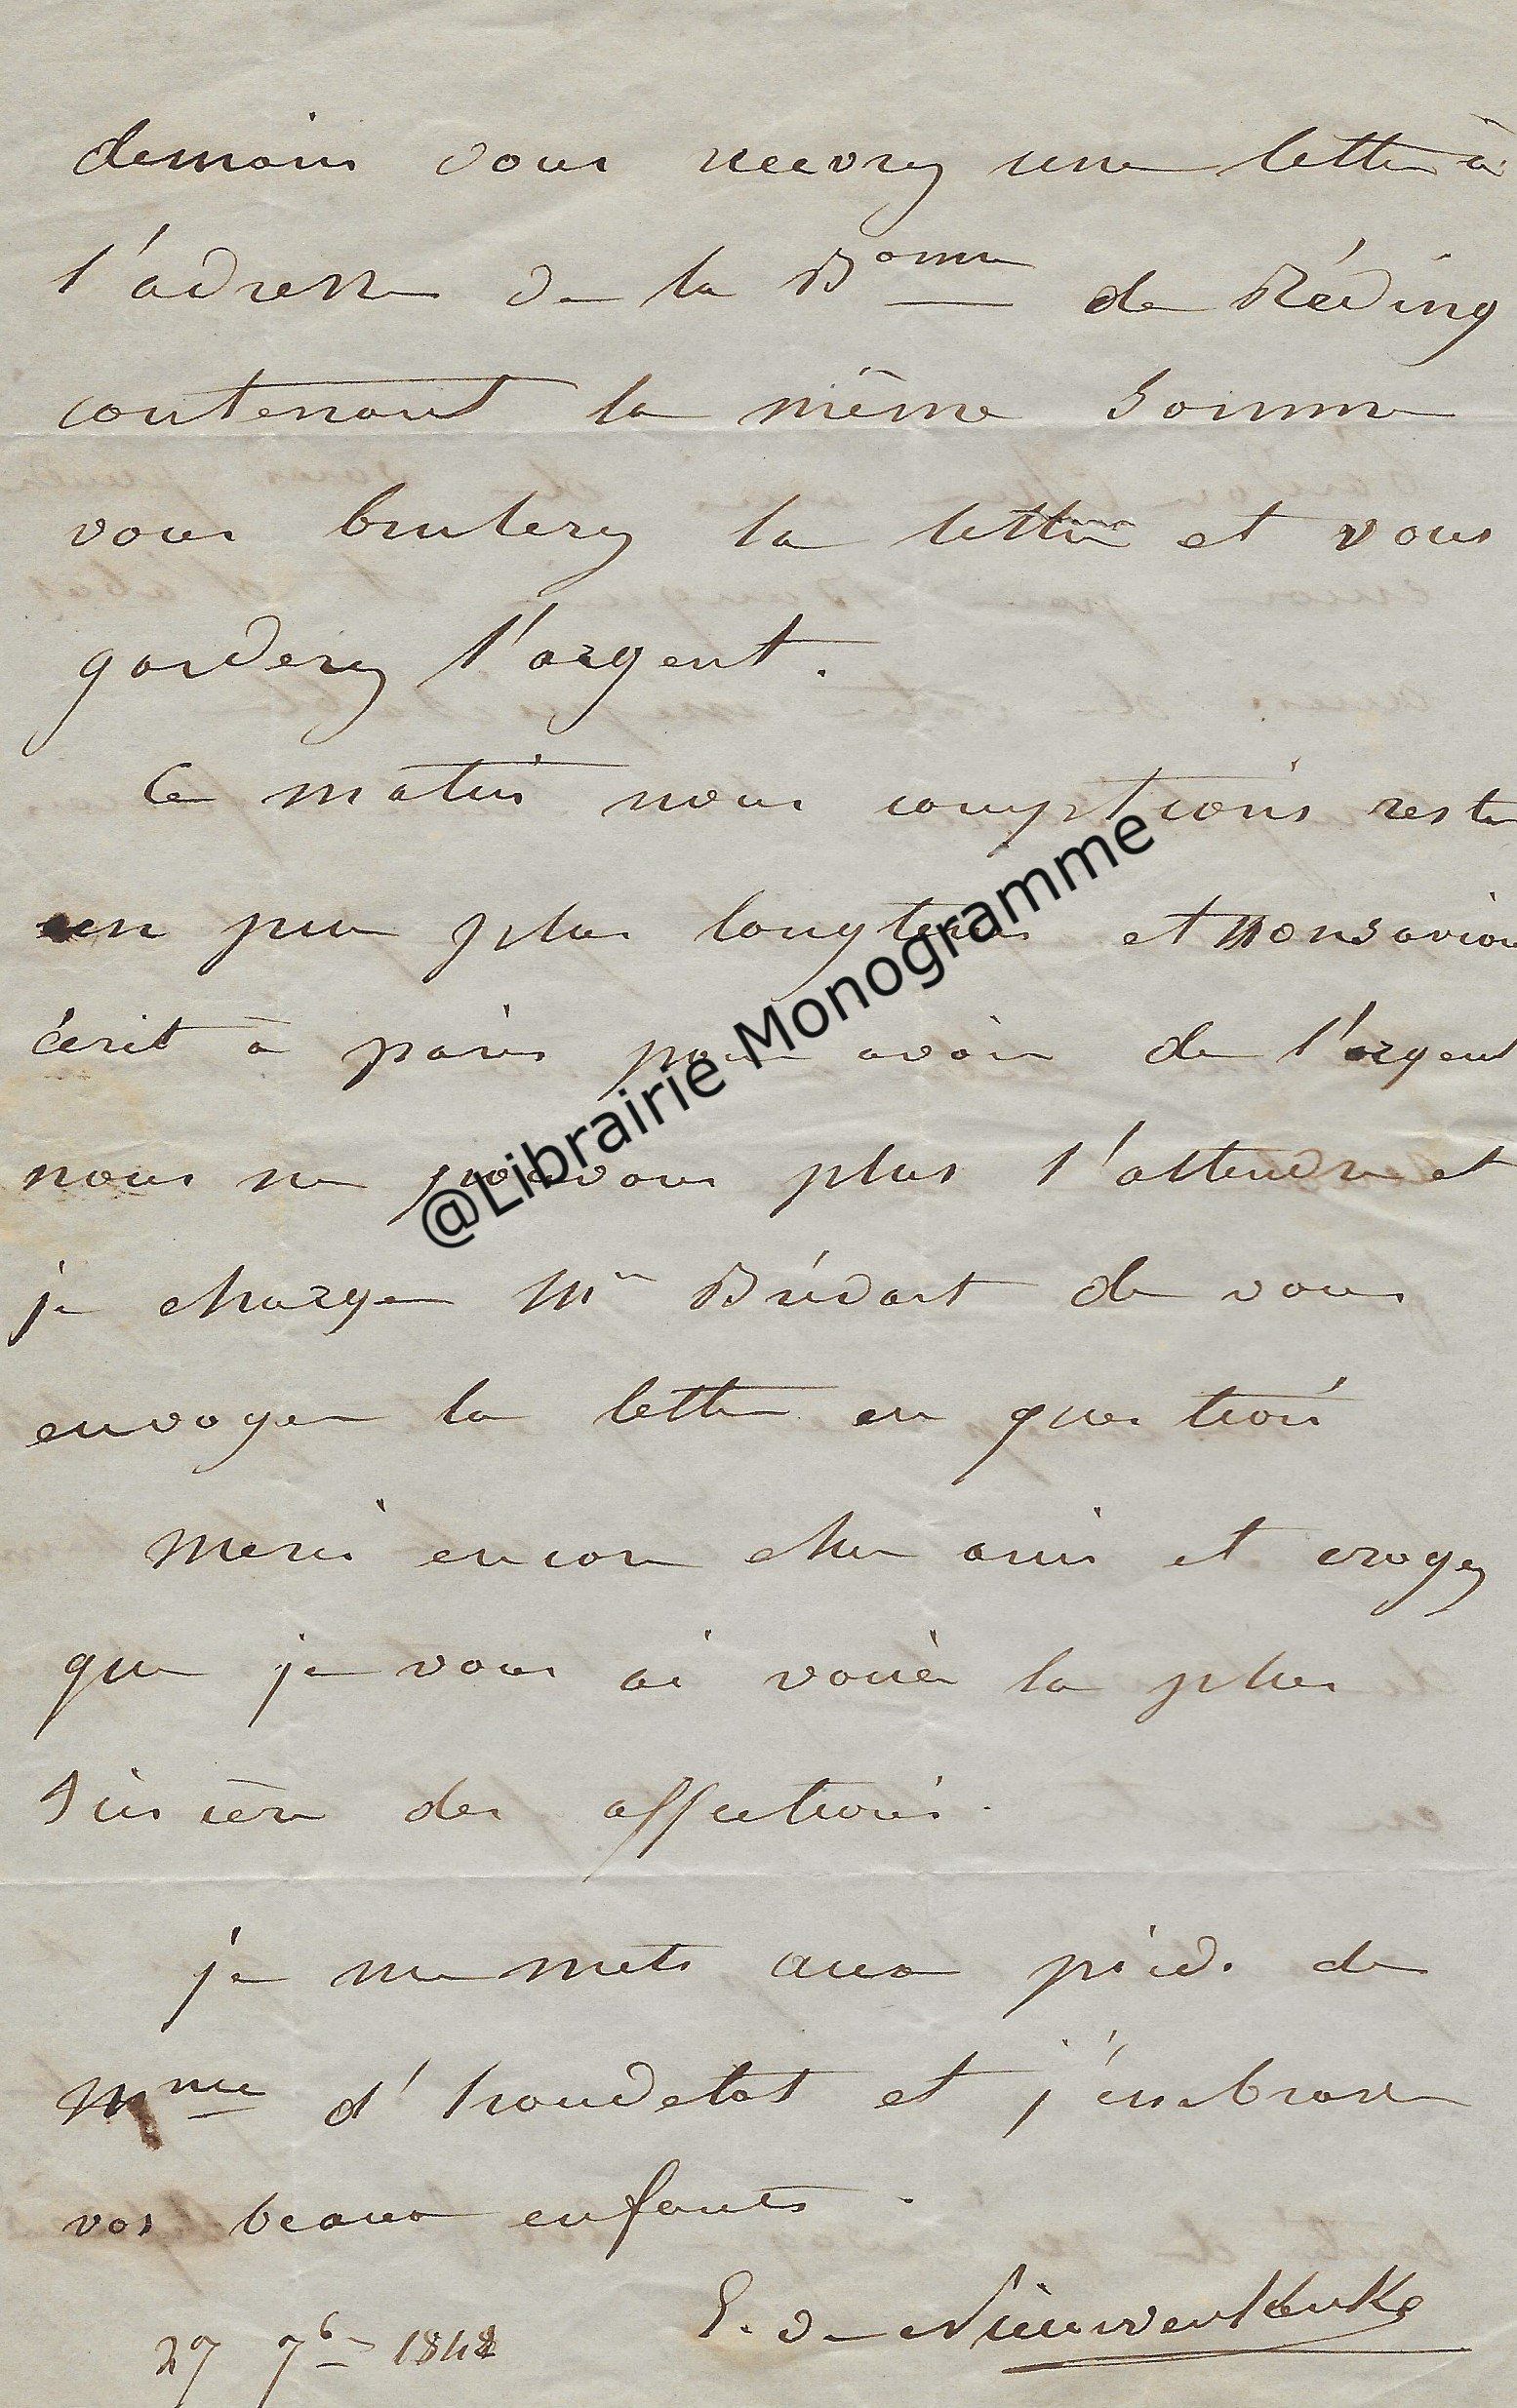 demain vous recevrez une lettre à
l'adresse de la Bonne de Réding
contenant la même somme
vous brulerez la lettre et vous
garderez l'argent.
Ce matin nous comptions rester
un peu plus longtems et nous avions
écrit à paris pour avoir de l'argent
nous ne pouvons plus l'attendre et
je charge Mr Brédart de vous
envoyer la lettre en question
Merci encore cher ami et croyez
que je vous ai vouée la plus
sincère des affections.
je me mets aux pieds de
Mme d'houdetot et j'embrasse
vos beaux enfants.
E. de Nieuwerkerke
27 7b 1842
@Librairie Monogramme